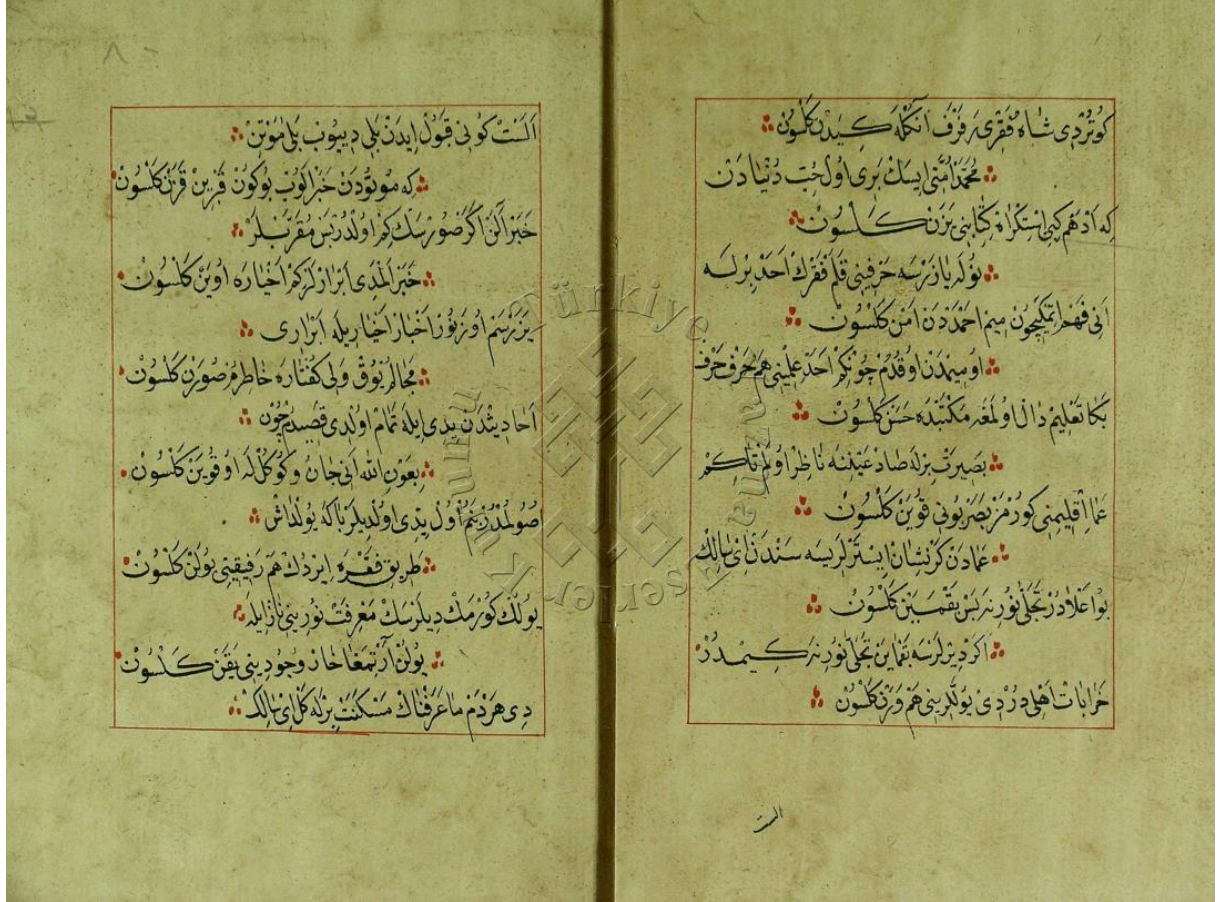 كوتردى شاه فقرى رفرف آنكله كيدن كلسون
محمد امتى ايسك برى اول حب دنيادن
كه ادهم كبى استكراه كتابنى يزن كلسون
بوله يازرسه حرفينى قلم فقرك احد برله
انى فهم ايتمكيچون ميم احمددن امن كلسون
اوميمدن اوقدم چونكم احد علمينى هم حرف حرف
بكا تعليم دال اولمغه مكتبده حسن كلسون
بصيرت برله صاد عيننه ناظر اولم تاكم
عما اقليمنى كورمز بصر بونى قوين كلسون
عمادن كر نشان ايسترلريسه سندن اى سالك
بو اعلادر تجلى نورينه بس يقمين كلسون
اكر ديرلرسه يقماين تجلى نورينه كيمدر
خرابات اهلى دردى يوللرينى هم ورن كلسون
الست
الست كونى قبول ايدن بلى دييوب بلى مؤتن
كه موتودن خبر الوب بوكون قبرين قزن كلسون
خبر آلن اكر صورسك كم اولدر بس مقربلر
خبر المدى ابرارلر كم اخياره اوين كلسون
يزرسم اوزنور اخبار اخياريله ابرارى
مجالم يوق ولى كفتاره خاطرم صورن كلسون
احاديثدن يدى ايله تمام اولدى قصيدم چون
بعون الله انى جان و كوكلله اوقوين كلسون
صولمدر بنم اول يدى اولديلر باكه يولداش
طريق فقره ايردك هم رفيقنى بولن كلسون
يولك كورمك ديلرسك معرفت نورينى نازايله
يولن آرتمغا خار وجودينى يقن كلسون
دى هردم ما عرفناك مسكنت برله كل اى سالك